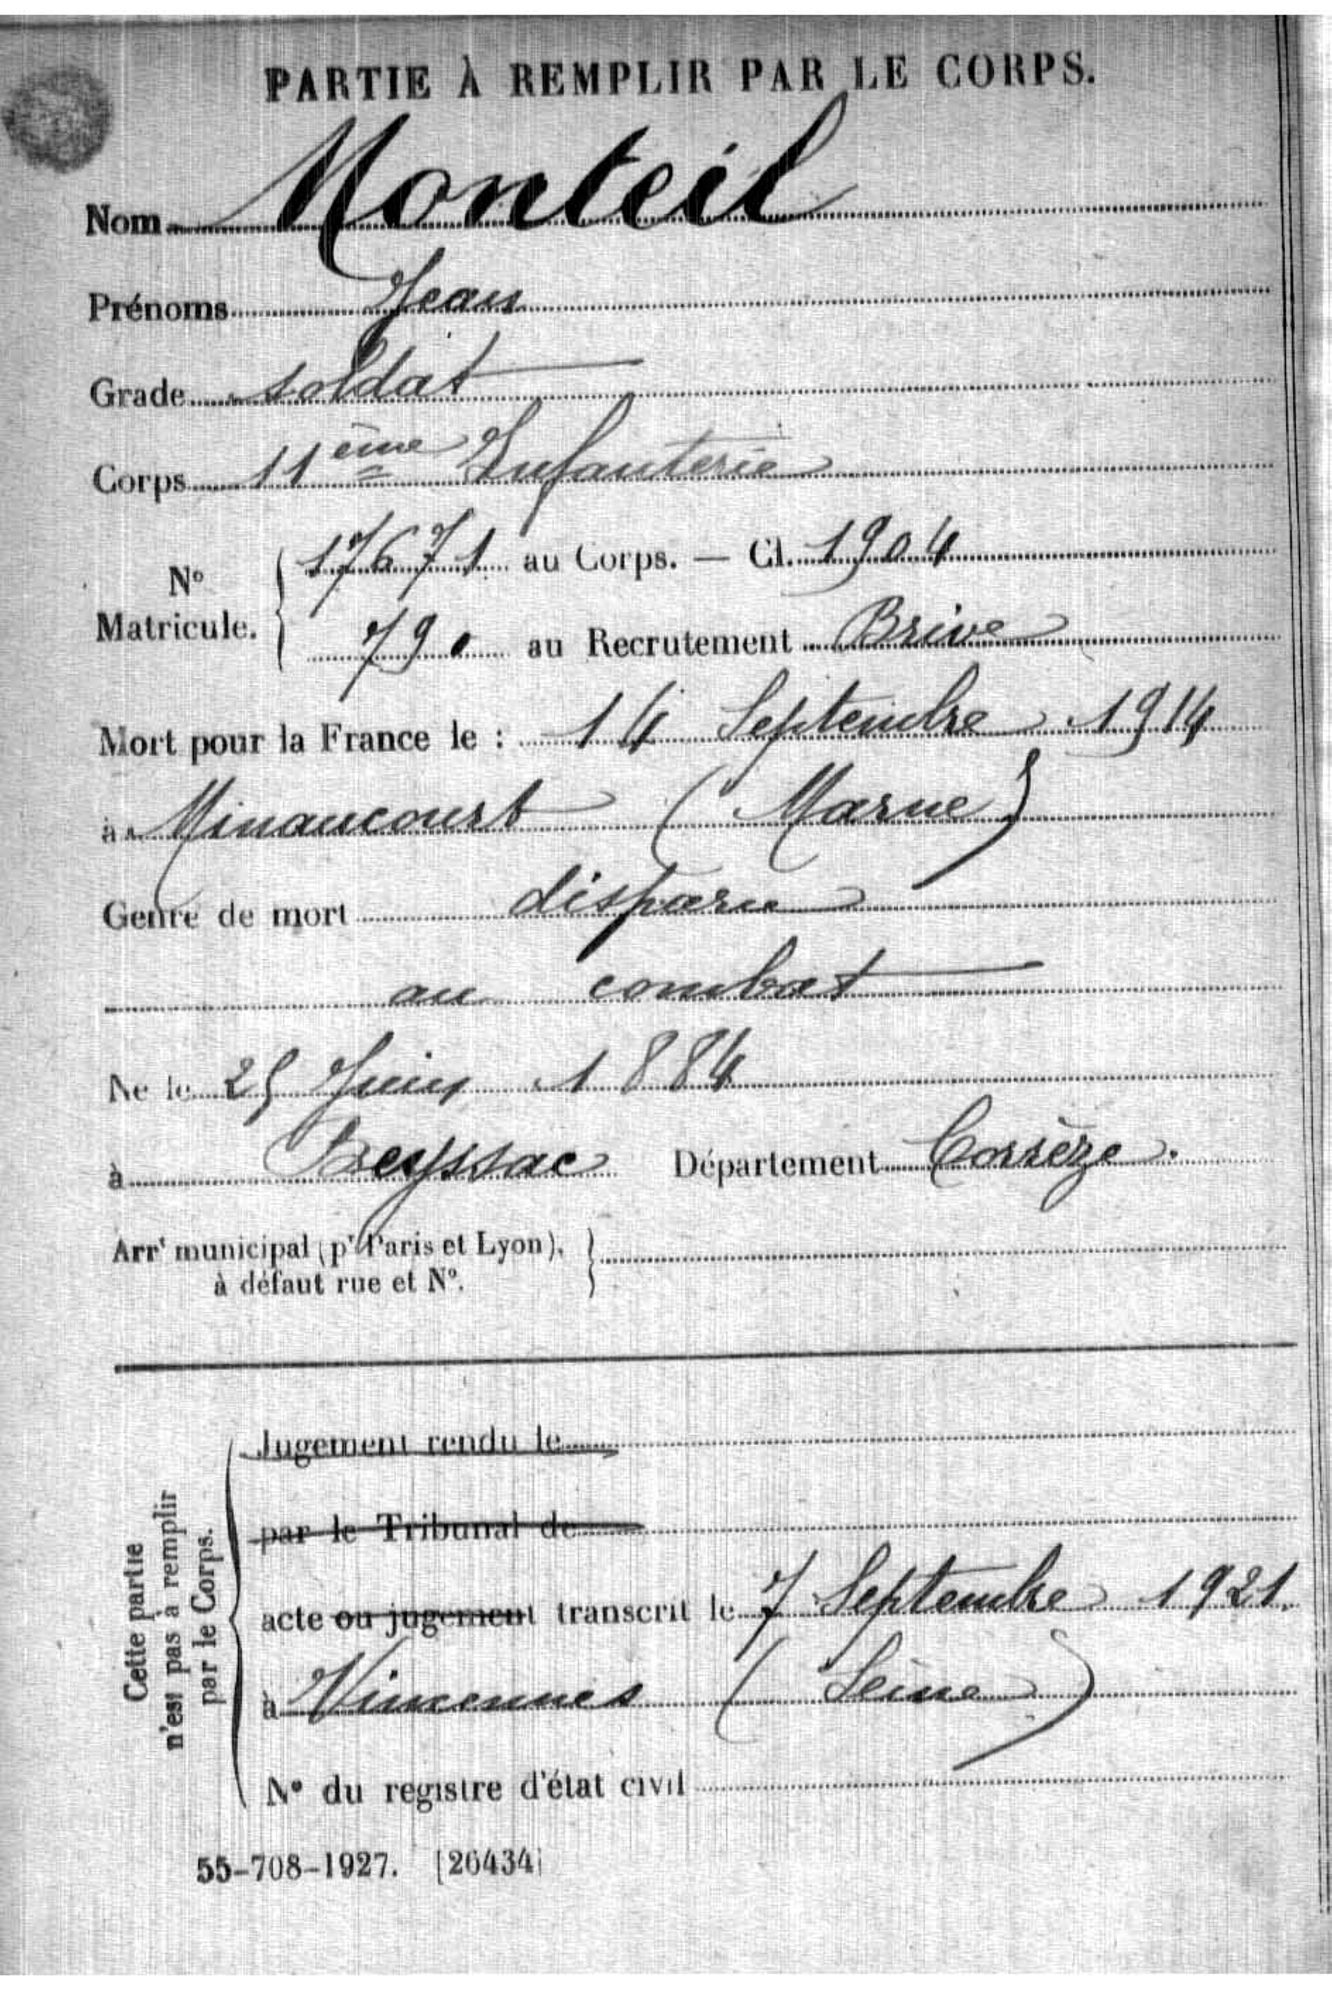 PARTIE À REMPLIR PAR LE CORPS.
Nom Monteil
Prénoms Jean
Grade soldat
Corps 11ème Infanterie
N° Matricule. { 17671 au Corps. — Cl. 1904
790 au Recrutement Brive
Mort pour la France le : 14 Septembre 1914
à Minaucourt (Marne)
Genre de mort disparu
au combat
Né le 25 Juin 1884
à Beyssac Département Corrèze.
Arrt municipal (pr Paris et Lyon), }
à défaut rue et N°.
Cette partie
n'est pas à remplir
par le Corps.
Jugement rendu le
par le Tribunal de
acte ou jugement transcrit le 7 Septembre 1921.
à Vincennes (Seine)
N° du registre d'état civil
55-708-1927. [26434]